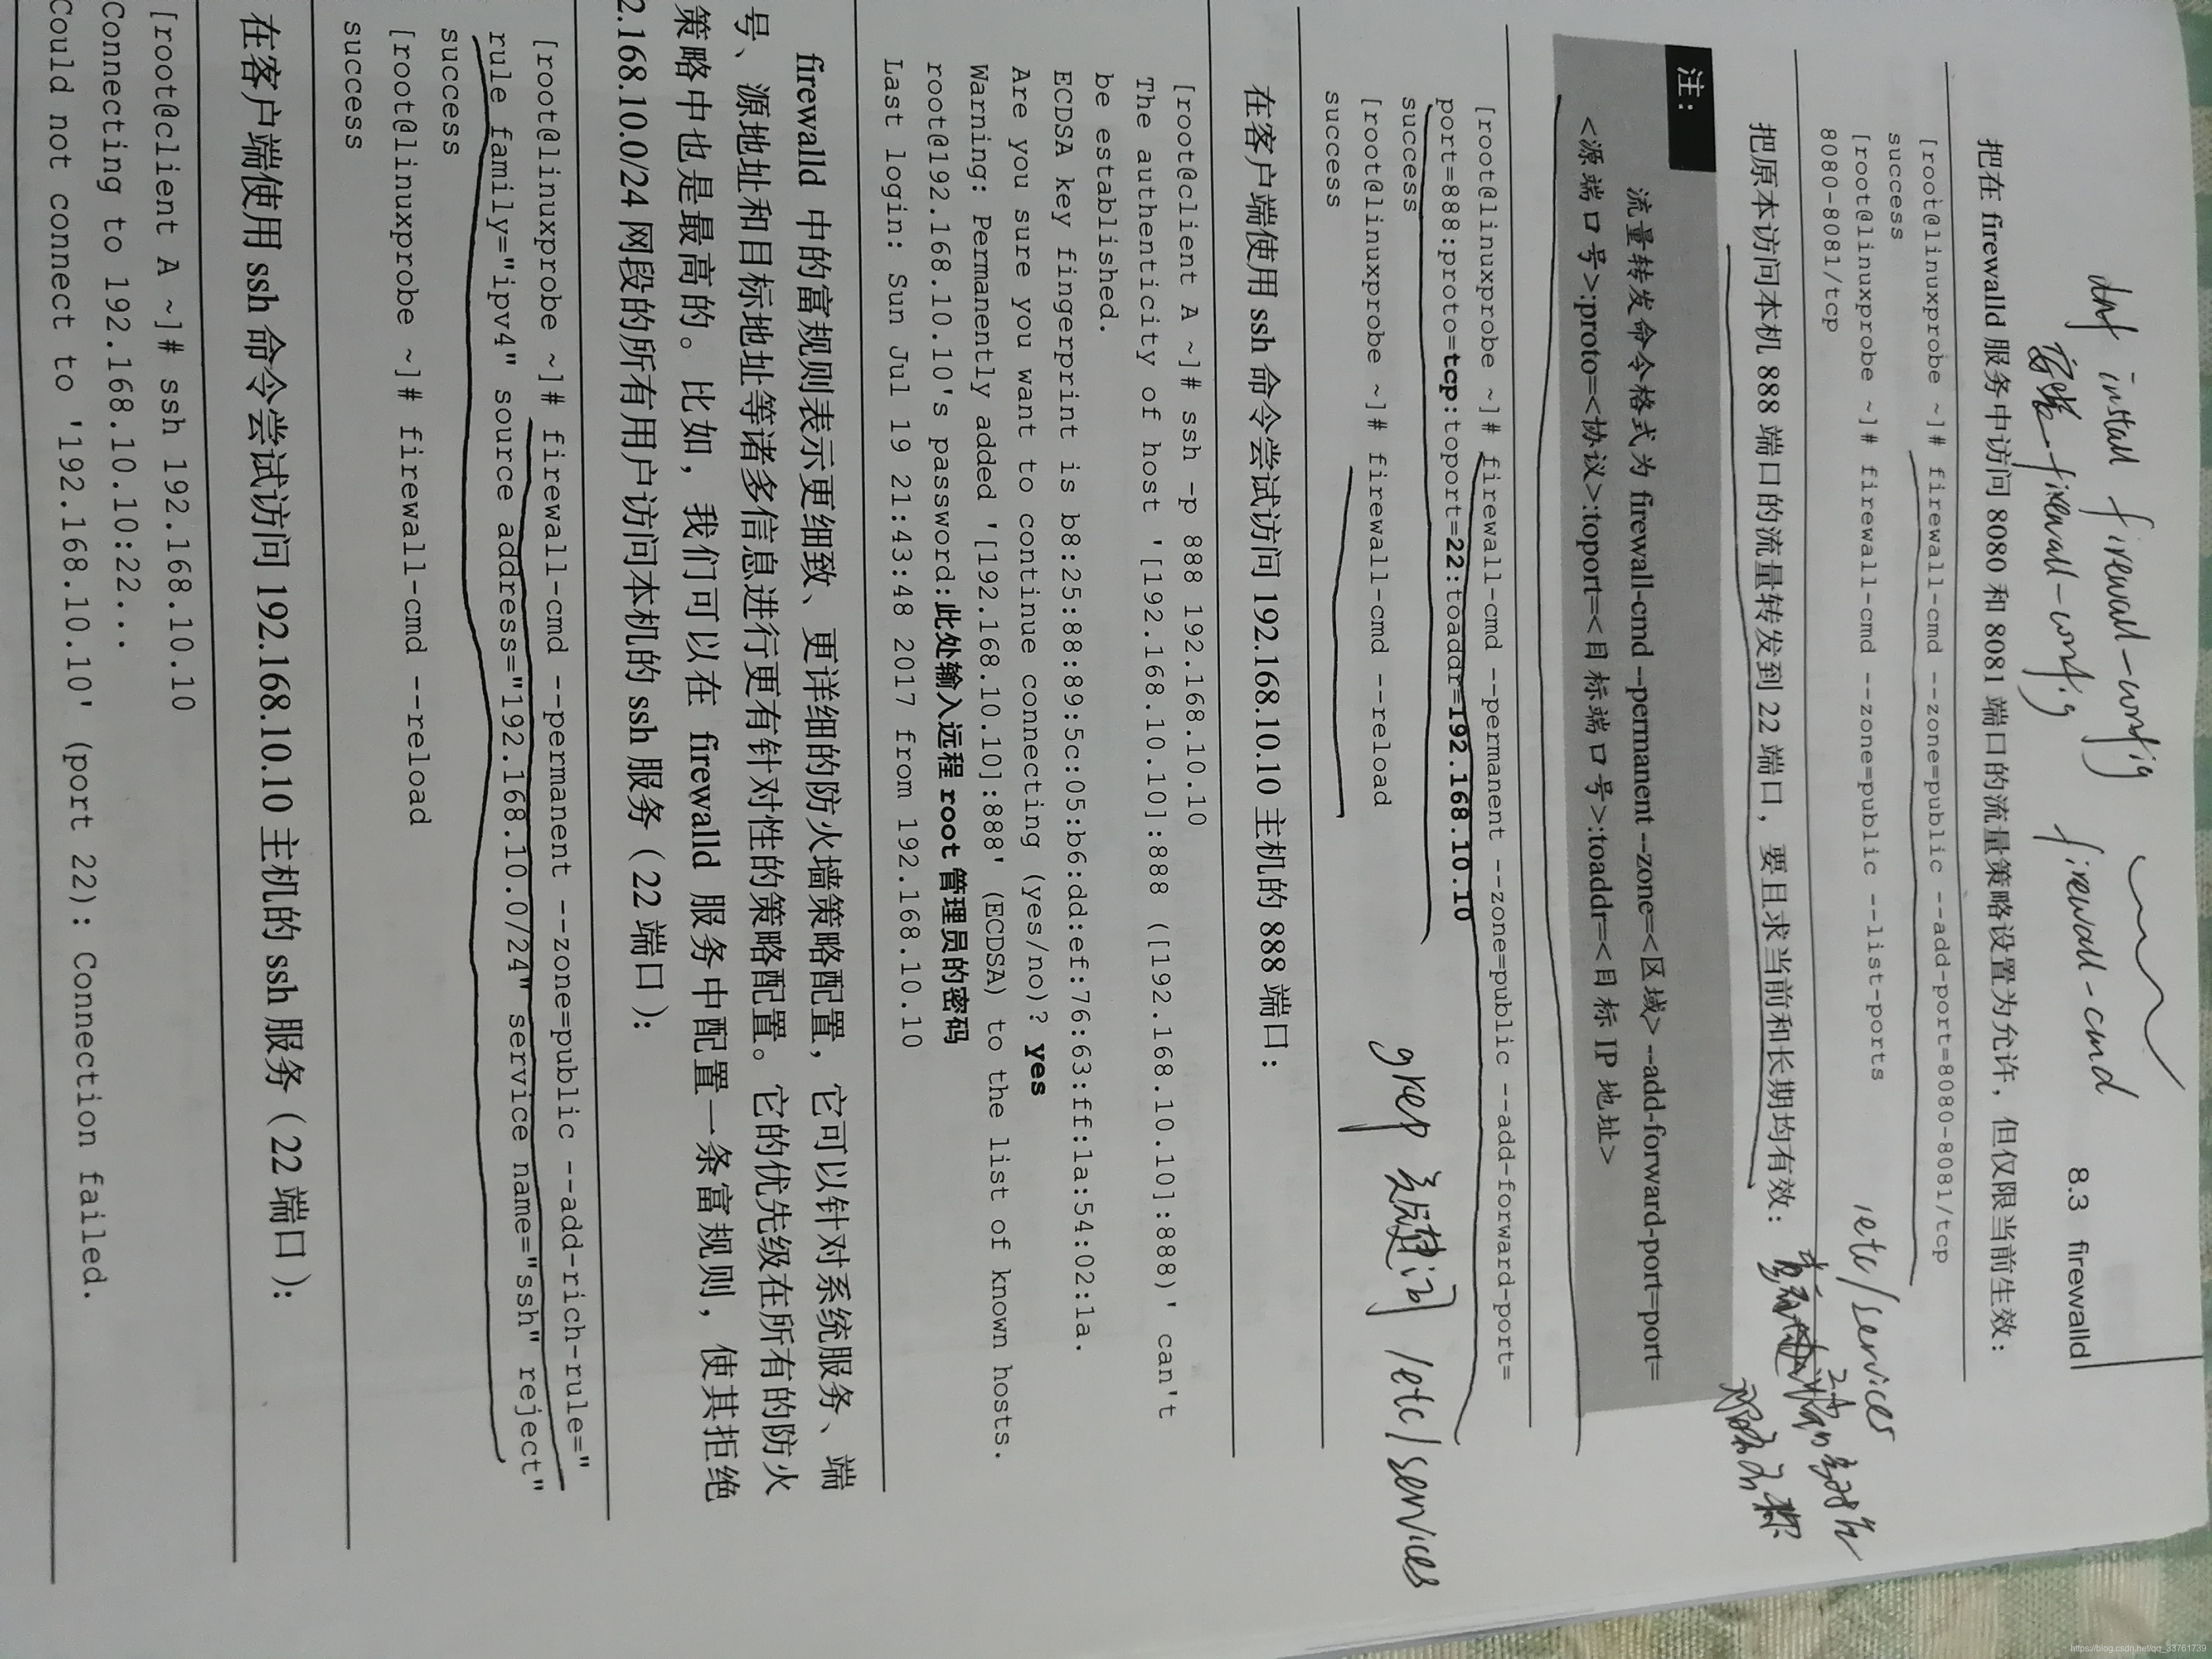 dnf install firewall-config
安装 firewall-config
firewall-cmd
8.3 firewalld
把在 firewalld 服务中访问 8080 和 8081 端口的流量策略设置为允许，但仅限当前生效：
[root@linuxprobe ~]# firewall-cmd --zone=public --add-port=8080-8081/tcp
success
[root@linuxprobe ~]# firewall-cmd --zone=public --list-ports
8080-8081/tcp
/etc/services
把原本访问本机 888 端口的流量转发到 22 端口，要且求当前和长期均有效：
注：
流量转发命令格式为 firewall-cmd --permanent --zone=<区域> --add-forward-port=port=
<源端口号>:proto=<协议>:toport=<目标端口号>:toaddr=<目标 IP 地址>
[root@linuxprobe ~]# firewall-cmd --permanent --zone=public --add-forward-port=
port=888:proto=tcp:toport=22:toaddr=192.168.10.10
success
[root@linuxprobe ~]# firewall-cmd --reload
success
grep 关键词 /etc/services
在客户端使用 ssh 命令尝试访问 192.168.10.10 主机的 888 端口：
[root@client A ~]# ssh -p 888 192.168.10.10
The authenticity of host '[192.168.10.10]:888 ([192.168.10.10]:888)' can't
be established.
ECDSA key fingerprint is b8:25:88:89:5c:05:b6:dd:ef:76:63:ff:1a:54:02:1a.
Are you sure you want to continue connecting (yes/no)? yes
Warning: Permanently added '[192.168.10.10]:888' (ECDSA) to the list of known hosts.
root@192.168.10.10's password:此处输入远程 root 管理员的密码
Last login: Sun Jul 19 21:43:48 2017 from 192.168.10.10
firewalld 中的富规则表示更细致、更详细的防火墙策略配置，它可以针对系统服务、端
号、源地址和目标地址等诸多信息进行更有针对性的策略配置。它的优先级在所有的防火
策略中也是最高的。比如，我们可以在 firewalld 服务中配置一条富规则，使其拒绝
2.168.10.0/24 网段的所有用户访问本机的 ssh 服务（22 端口）：
[root@linuxprobe ~]# firewall-cmd --permanent --zone=public --add-rich-rule="
rule family="ipv4" source address="192.168.10.0/24" service name="ssh" reject"
success
[root@linuxprobe ~]# firewall-cmd --reload
success
在客户端使用 ssh 命令尝试访问 192.168.10.10 主机的 ssh 服务（22 端口）：
[root@client A ~]# ssh 192.168.10.10
Connecting to 192.168.10.10:22...
Could not connect to '192.168.10.10' (port 22): Connection failed.
https://blog.csdn.net/qq_33761739